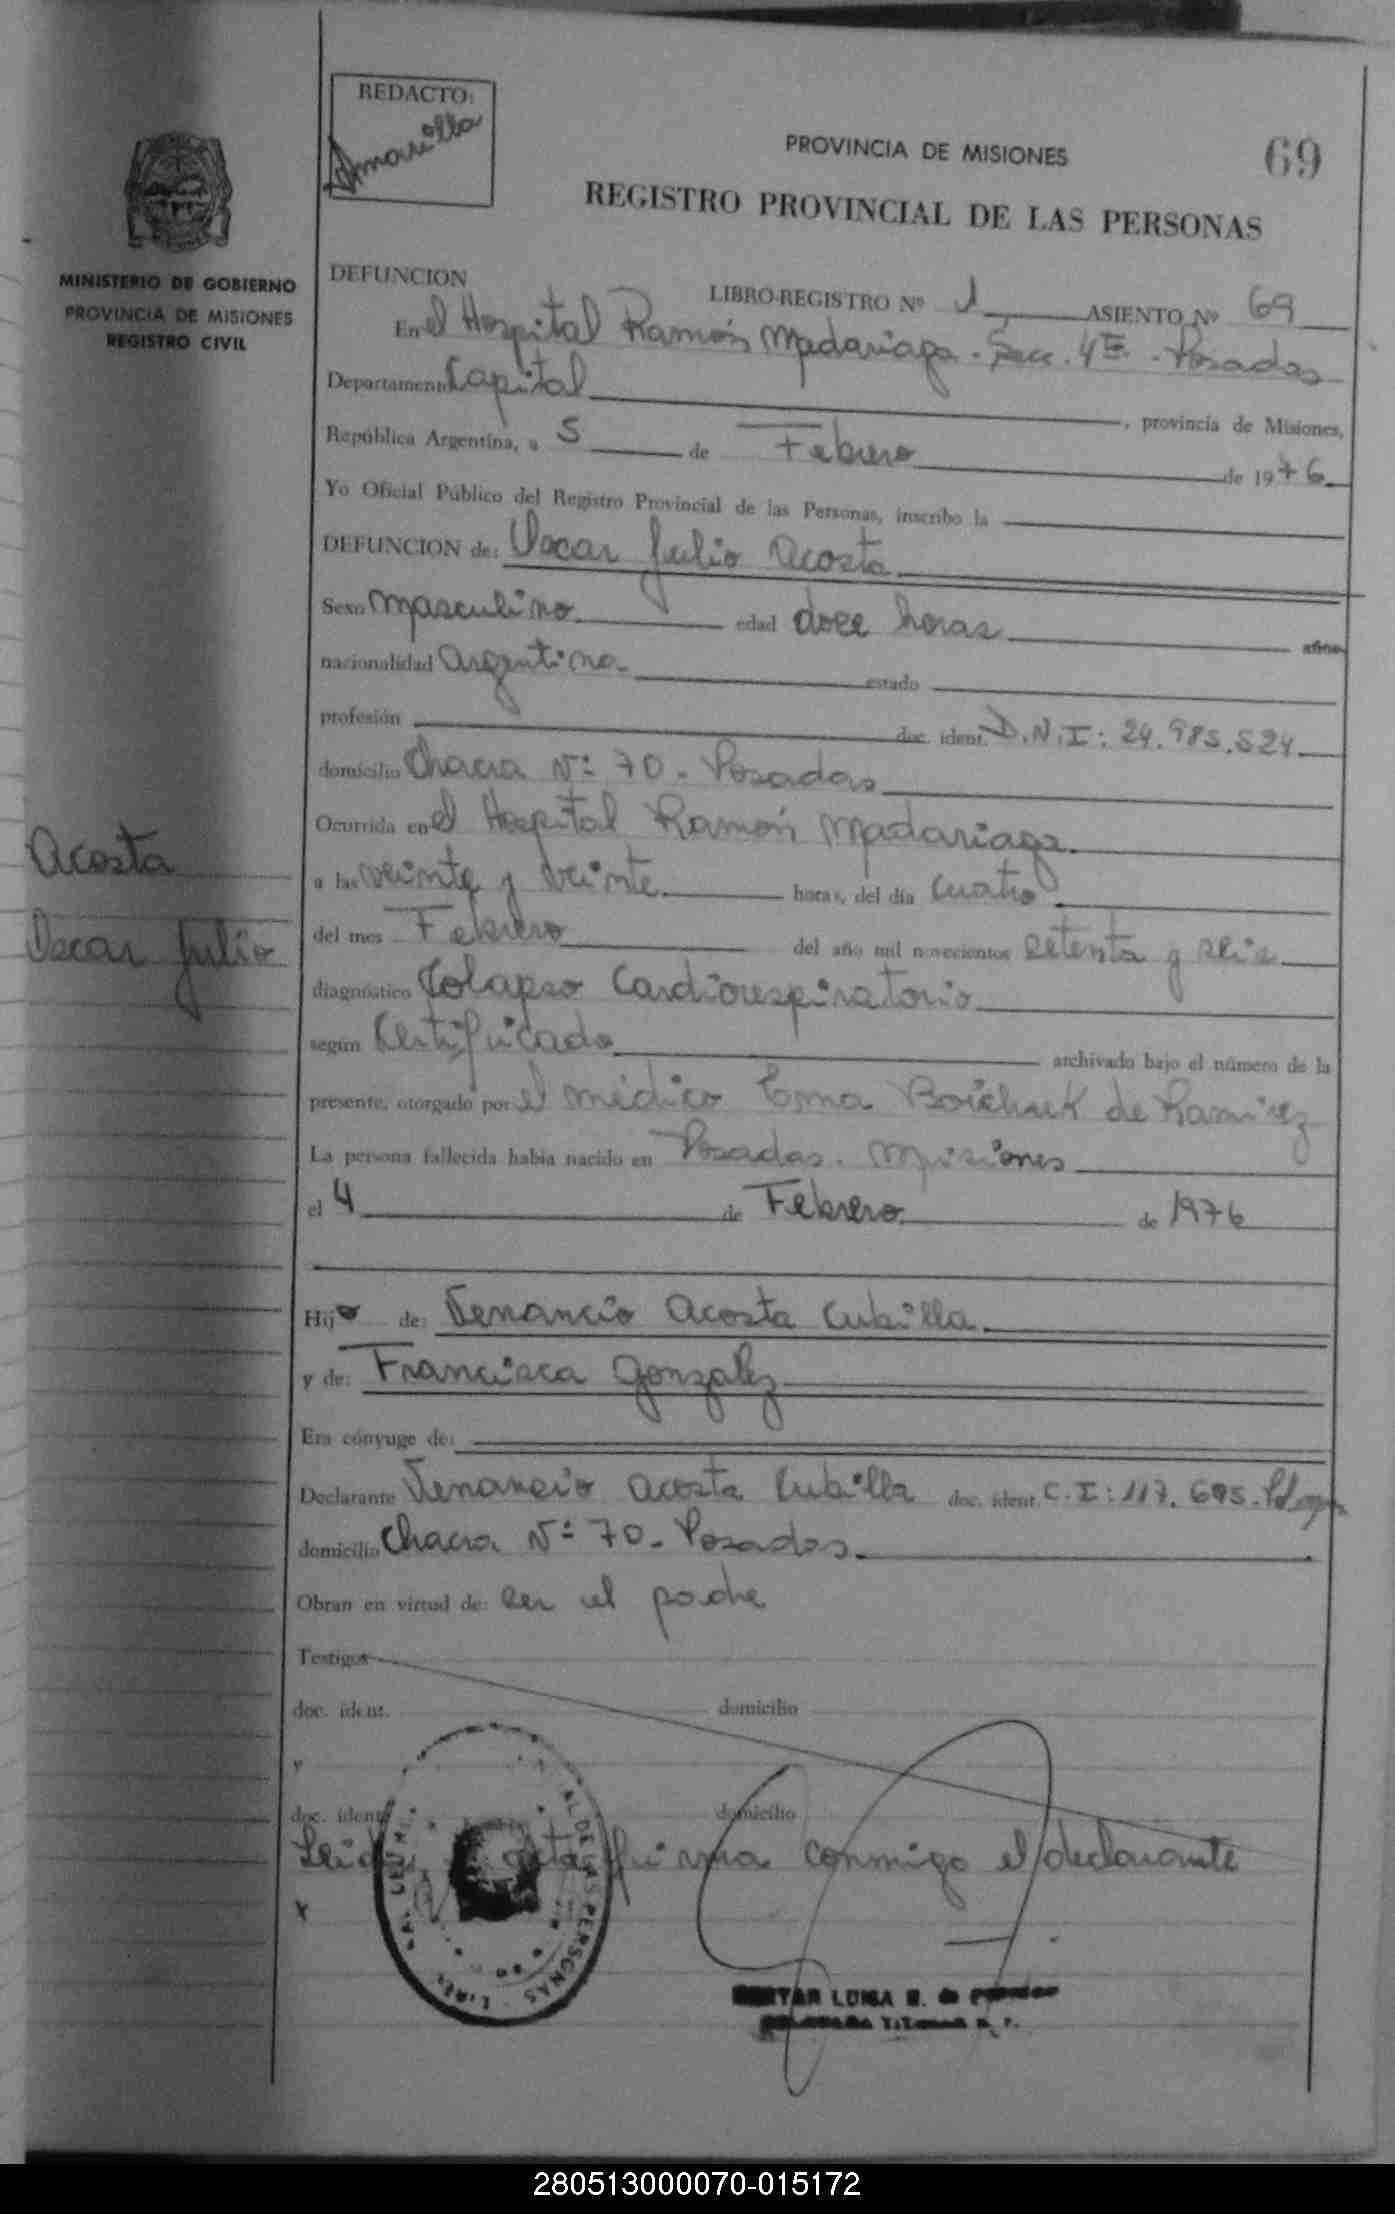 REDACTO:
Amarilla
PROVINCIA DE MISIONES
69
REGISTRO PROVINCIAL DE LAS PERSONAS
MINISTERIO DE GOBIERNO
PROVINCIA DE MISIONES
REGISTRO CIVIL
DEFUNCION
LIBRO-REGISTRO Nº 1 ASIENTO Nº 69
En el Hospital Ramón Madariaga. Secc. 4ta. Posadas
Departamento Capital, provincia de Misiones,
República Argentina, a 5 de Febrero de 1976
Yo Oficial Público del Registro Provincial de las Personas, inscribo la
DEFUNCION de: Oscar Julio Acosta
Sexo Masculino edad doce horas años
nacionalidad Argentina estado
profesión doc. ident. D.N.I: 24.985.524
domicilio Chacra Nº 70. Posadas
Ocurrida en el Hospital Ramón Madariaga.
Acosta
a las veinte y veinte horas, del día cuatro
Oscar Julio
del mes Febrero del año mil novecientos setenta y seis
diagnóstico Colapso Cardiorespiratorio
según Certificado archivado bajo el número de la
presente, otorgado por el médico de Ramirez
La persona fallecida había nacido en Posadas. Misiones
el 4 de Febrero de 1976
Hijo de: Venancio Acosta Cubilla
y de: Francisca Gonzalez
Era cónyuge de:
Declarante Venancio Acosta Cubilla doc. ident. C.I: 117.695.
domicilio Chacra Nº 70. Posadas.
Obran en virtud de: ser el padre
Testigos
doc. ident. domicilio
y
doc. ident. domicilio
firma conmigo el declarante
DE LAS PERSONAS
LUISA
280513000070-015172